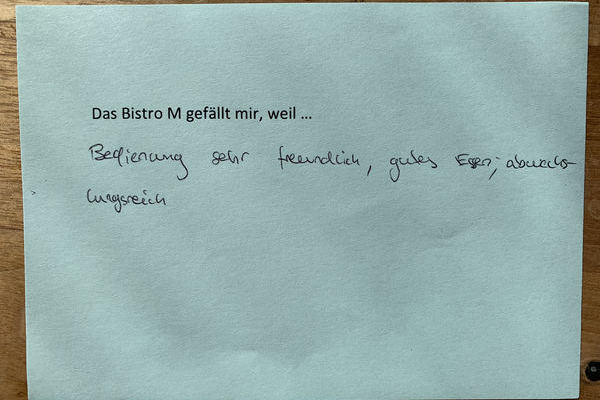 Das Bistro M gefällt mir, weil ...
Bedienung sehr freundlich, gutes Essen, abwechs-
lungsreich